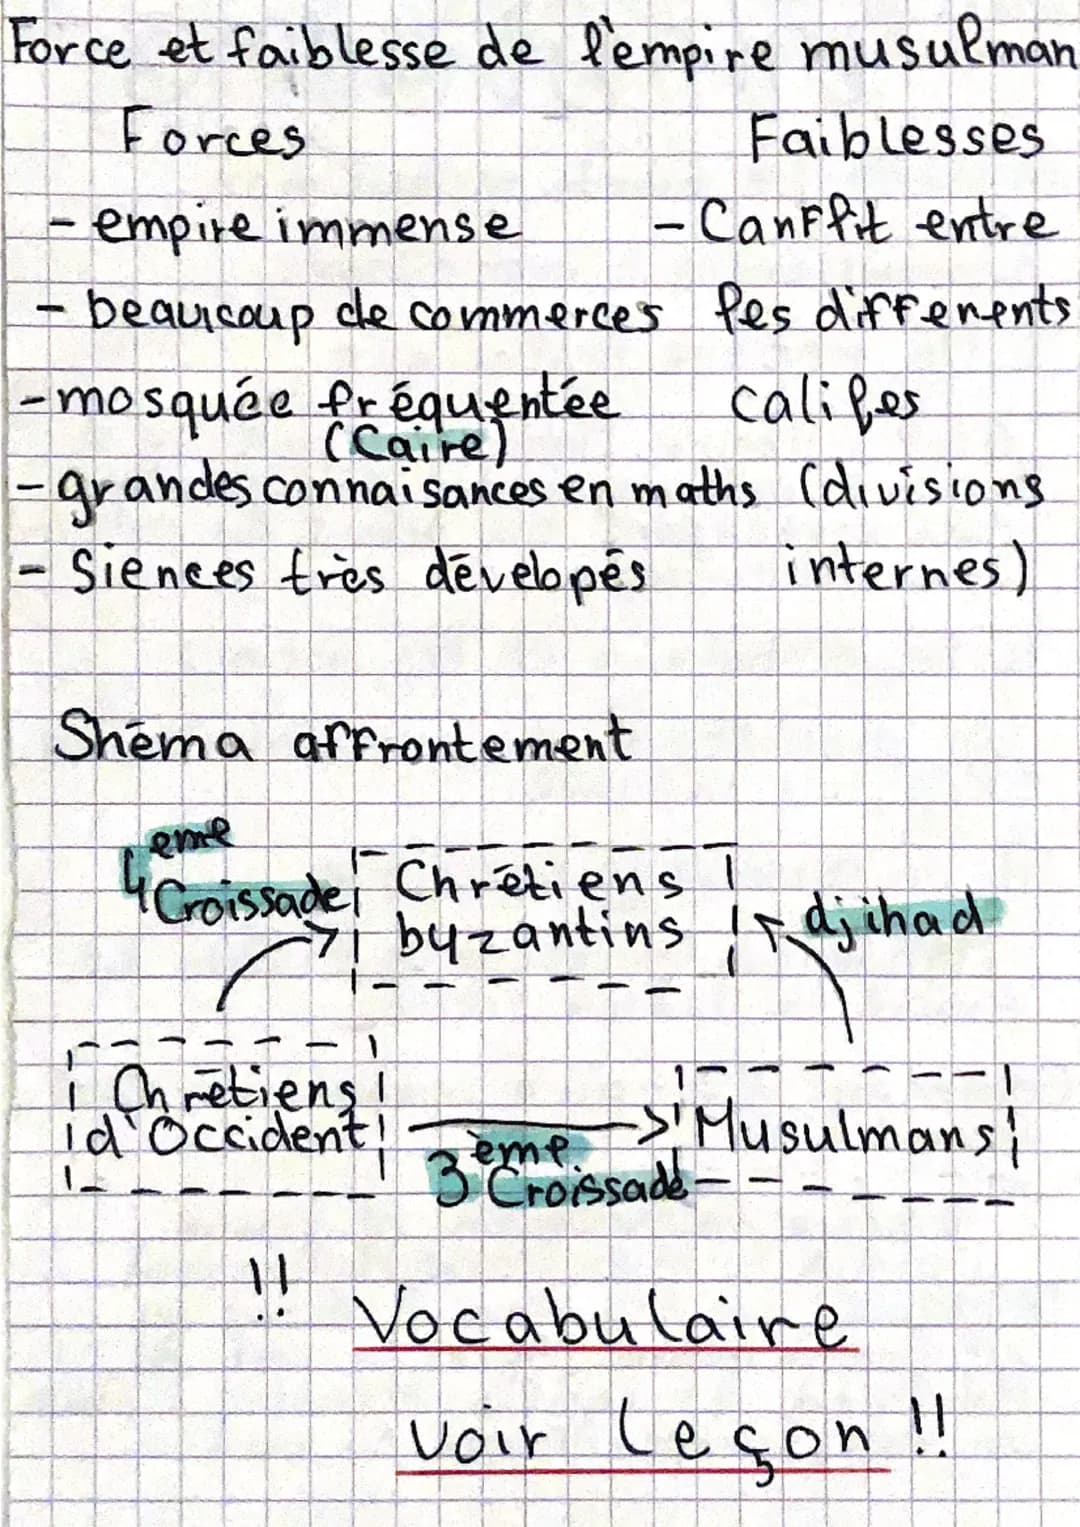 Force et faiblesse de l'empire musulman
Forces
Faiblesses
- empire immense
- Canflit entre
- beaucoup de commerces
les differents
- mosquée fréquentée
califes
(Caire)
- grandes connaisances en maths
(divisions
- Siences très dévelopés
internes)
Shéma affrontement
4eme
Croissade
Chrétiens
byzantins
djihad
Chrétiens
d'Occident
Musulmans
3ème
Croissade
!! Vocabulaire
voir leçon !!